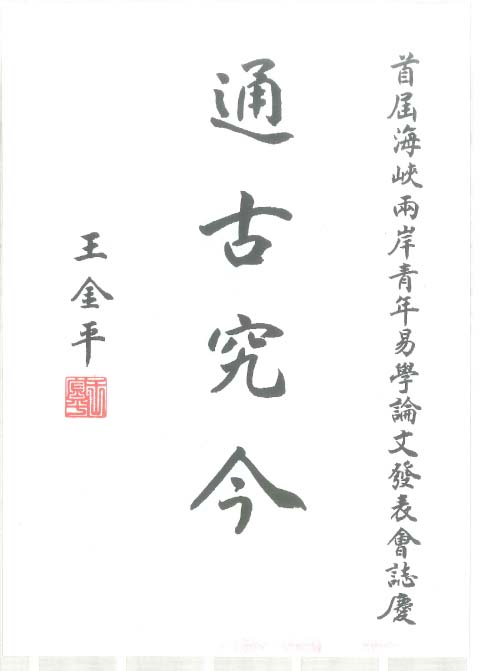 首屆海峽兩岸青年易學論文發表會誌慶
通古究今
王金平